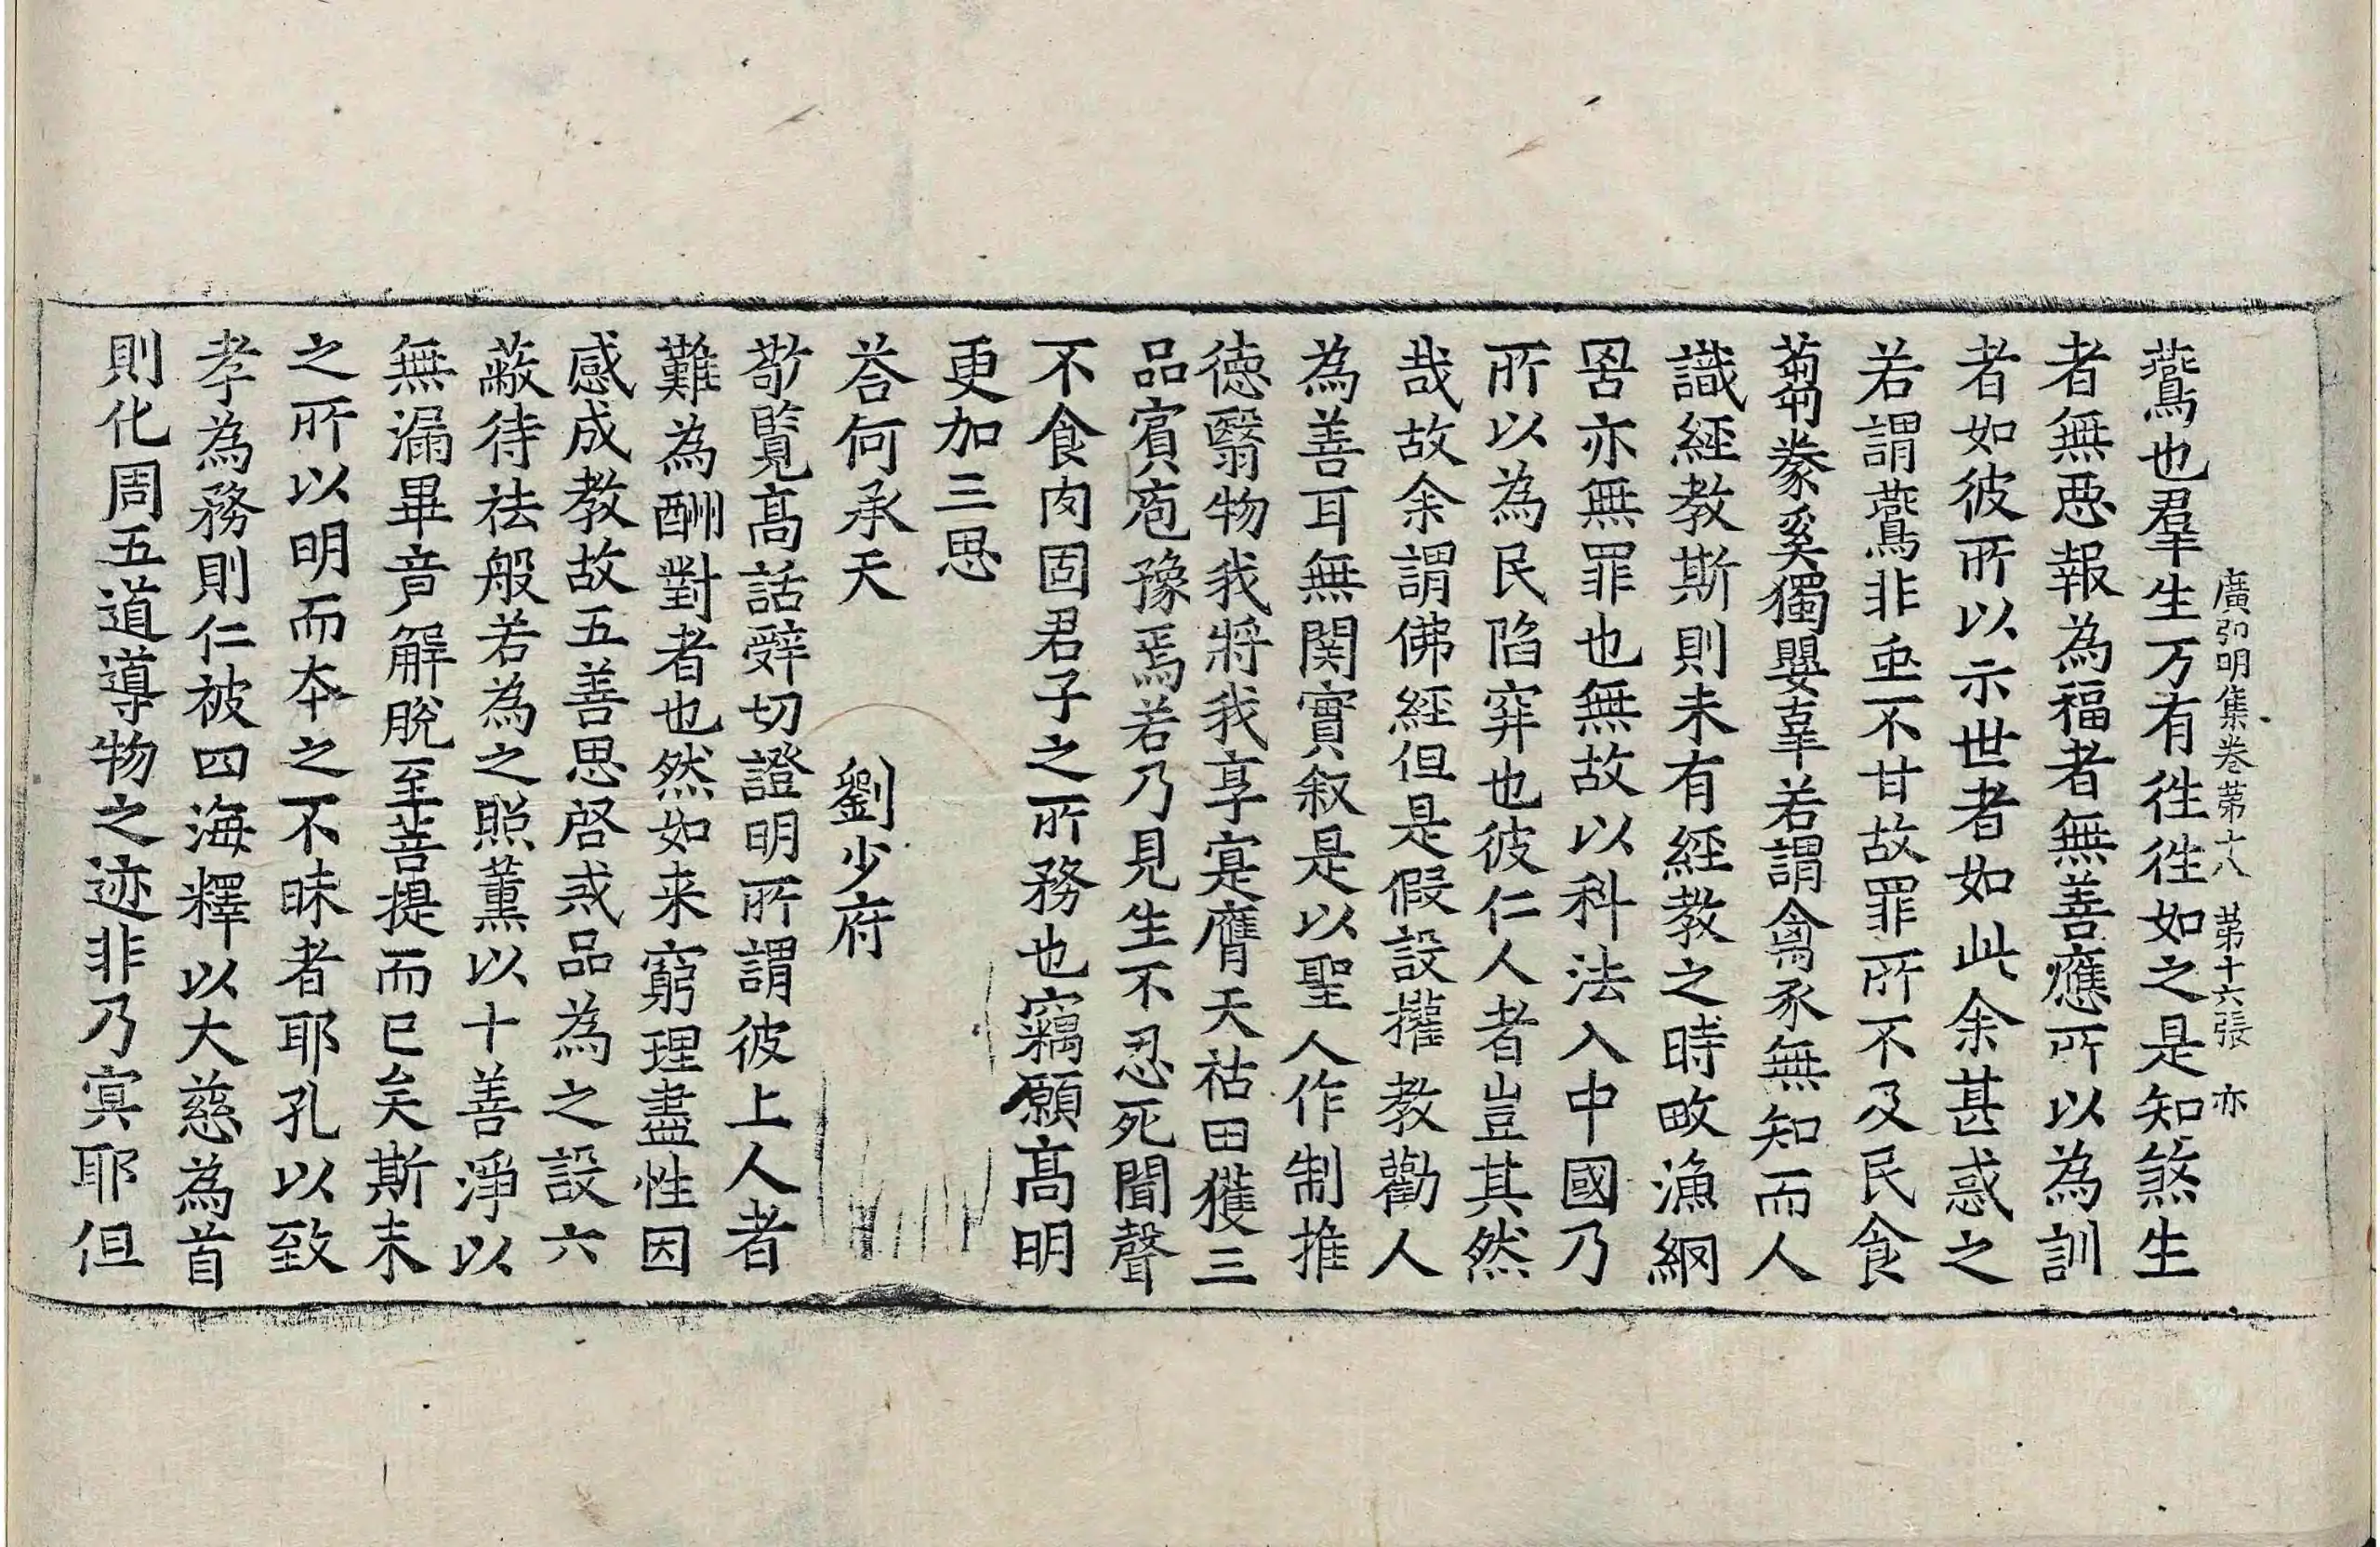 廣弘明集卷苐十八 苐十六張 亦
鷰也羣生万有徃徃如之是知煞生
者無惡報為福者無善應所以為訓
者如彼所以示世者如此余甚惑之
若謂鷰非蟲不甘故罪所不及民食
蒭豢奚獨嬰辜若謂禽豕無知而人
識經教斯則未有經教之時畋漁網
罟亦無罪也無故以科法入中國乃
所以為民陷穽也彼仁人者豈其然
哉故余謂佛經但是假設權教勸人
為善耳無関實叙是以聖人作制推
徳翳物我將我享寔膺天祜田獲三
品賔庖豫焉若乃見生不忍死聞聲
不食肉固君子之所務也竊願髙明
更加三思
荅何承天 劉少府
敬覽髙話辝切證明所謂彼上人者
難為酬對者也然如来窮理盡性因
感成教故五善思啓戒品為之設六
蔽待祛般若為之照薰以十善淨以
無漏畢竟解脫至菩提而已矣斯末
之所以明而夲之不昧者耶孔以致
孝為務則仁被四海釋以大慈為首
則化周五道導物之迹非乃寘耶但